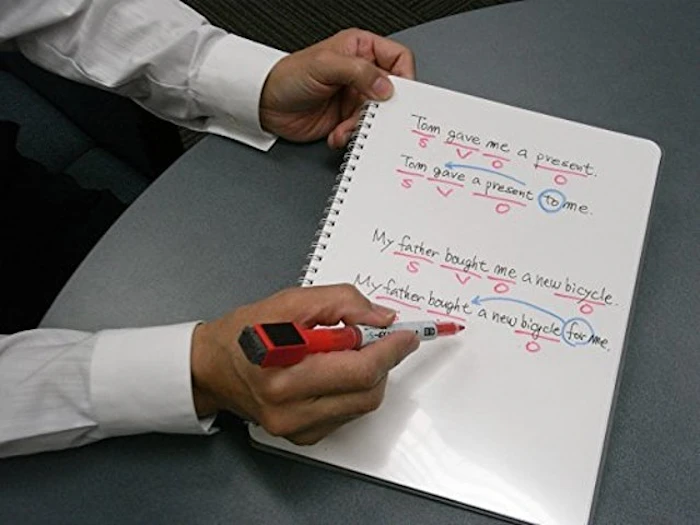 Tom gave me a present.
S V O O
Tom gave a present to me.
S V O
My father bought me a new bicycle.
S V O O
My father bought a new bicycle for me.
O